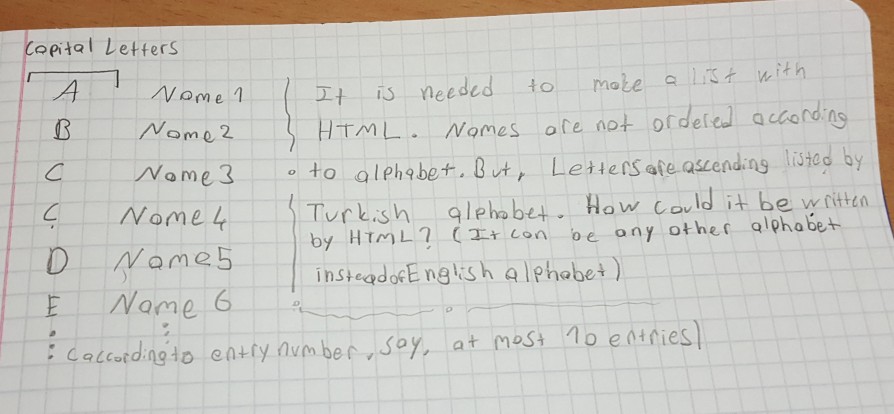 Capital Letters
A Name 1 It is needed to make a list with
B Name 2 HTML. Names are not ordered according
C Name 3 to alphabet. But, Letters are ascending listed by
Ç Name 4 Turkish alphabet. How could it be written
by HTML? (It can be any other alphabet
D Name 5 instead of English alphabet)
E Name 6
(according to entry number, say, at most 10 entries)